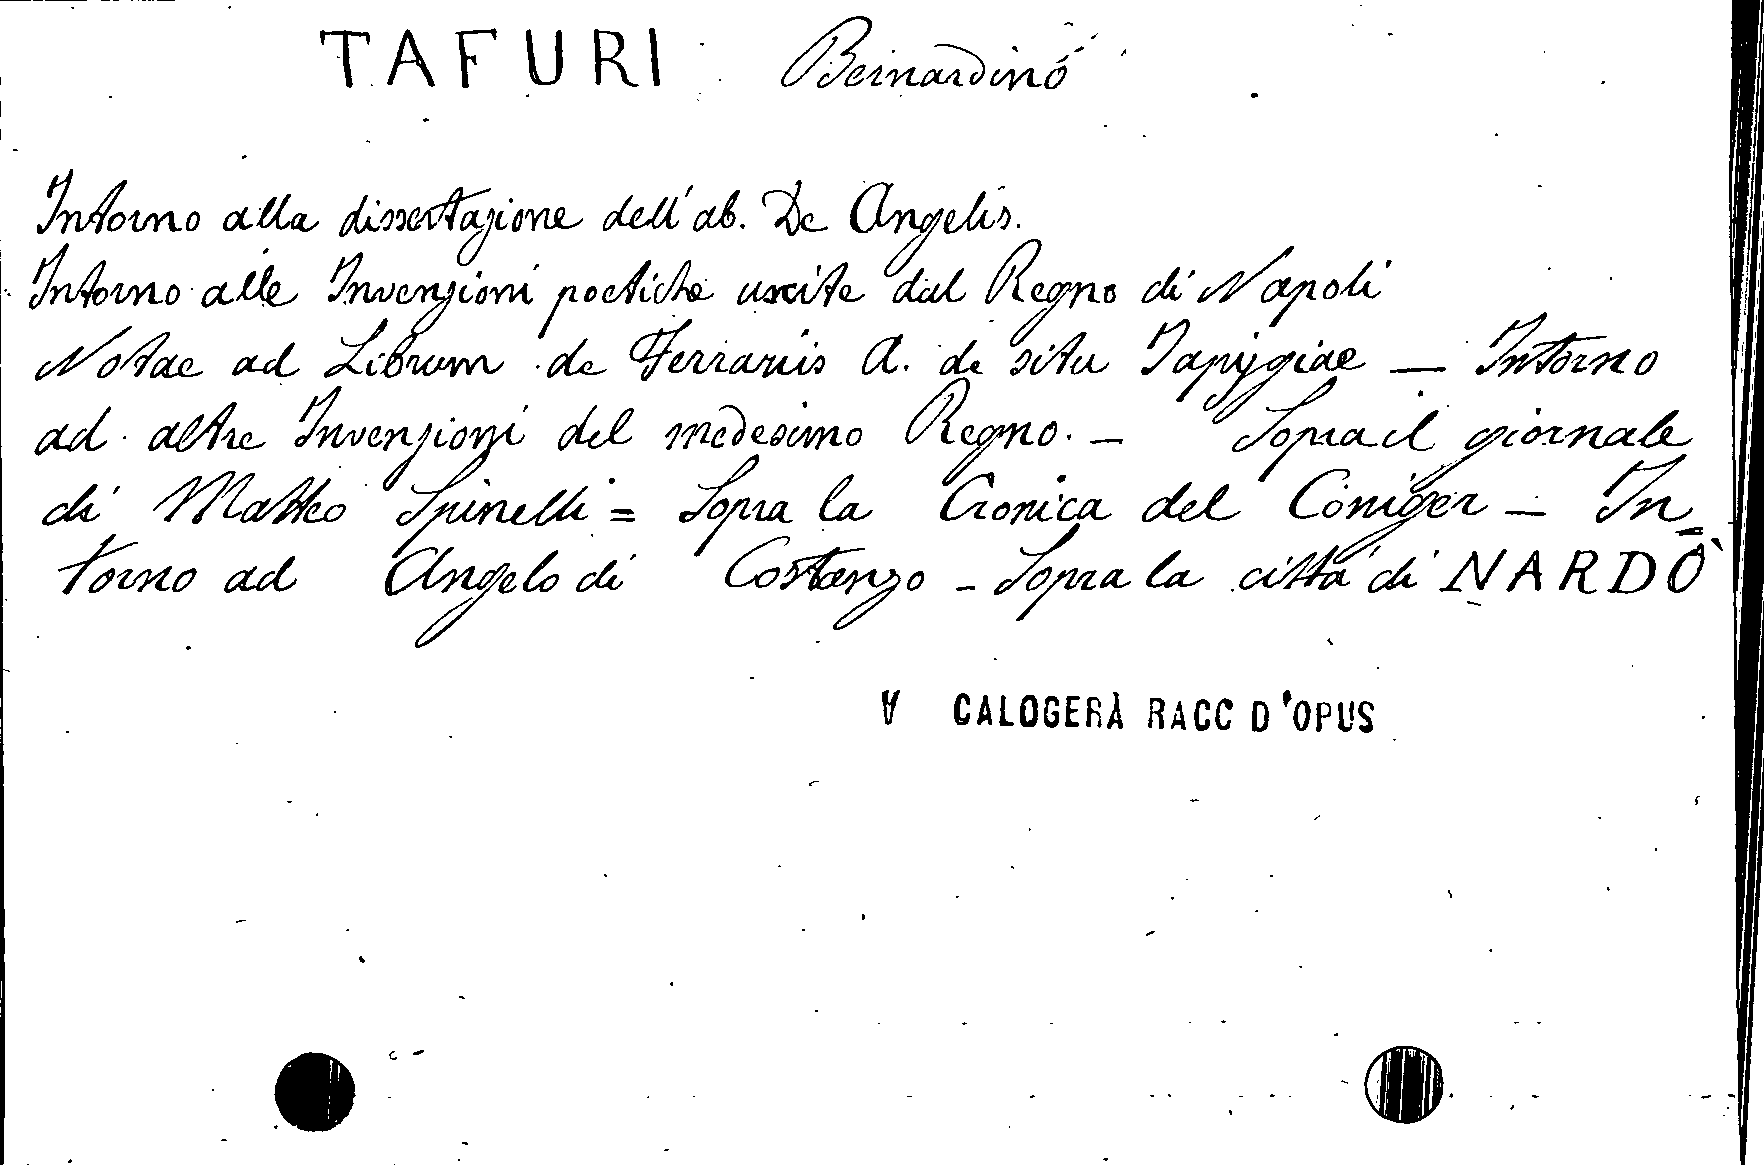 TAFURI Bernardino
Intorno alla dissertazione dell'ab. De Angelis.
Intorno alle Invenzioni poetiche uscite dal Regno di Napoli
Notae ad Librum de Ferrariis A. de situ Japygiae — Intorno
ad altre Invenzioni del medesimo Regno. — Sopra il giornale
di Matteo Spinelli = Sopra la Cronica del Coniger — In=
torno ad Angelo di Costanzo - Sopra la città di NARDÒ
V CALOGERÀ RACC D'OPUS